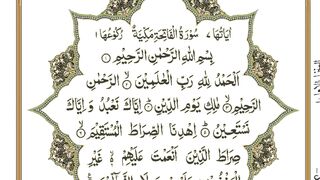 اٰیَاتُهَا ۷ سُوْرَةُ الْفَاتِحَةِ مَكِّیَّةٌ رُكُوْعُهَا ۱
بِسْمِ اللّٰهِ الرَّحْمٰنِ الرَّحِیْمِ
اَلْحَمْدُ لِلّٰهِ رَبِّ الْعٰلَمِیْنَ الرَّحْمٰنِ
الرَّحِیْمِ مٰلِكِ یَوْمِ الدِّیْنِ اِیَّاكَ نَعْبُدُ وَ اِیَّاكَ
نَسْتَعِیْنُ اِهْدِنَا الصِّرَاطَ الْمُسْتَقِیْمَ
صِرَاطَ الَّذِیْنَ اَنْعَمْتَ عَلَیْهِمْ غَیْرِ